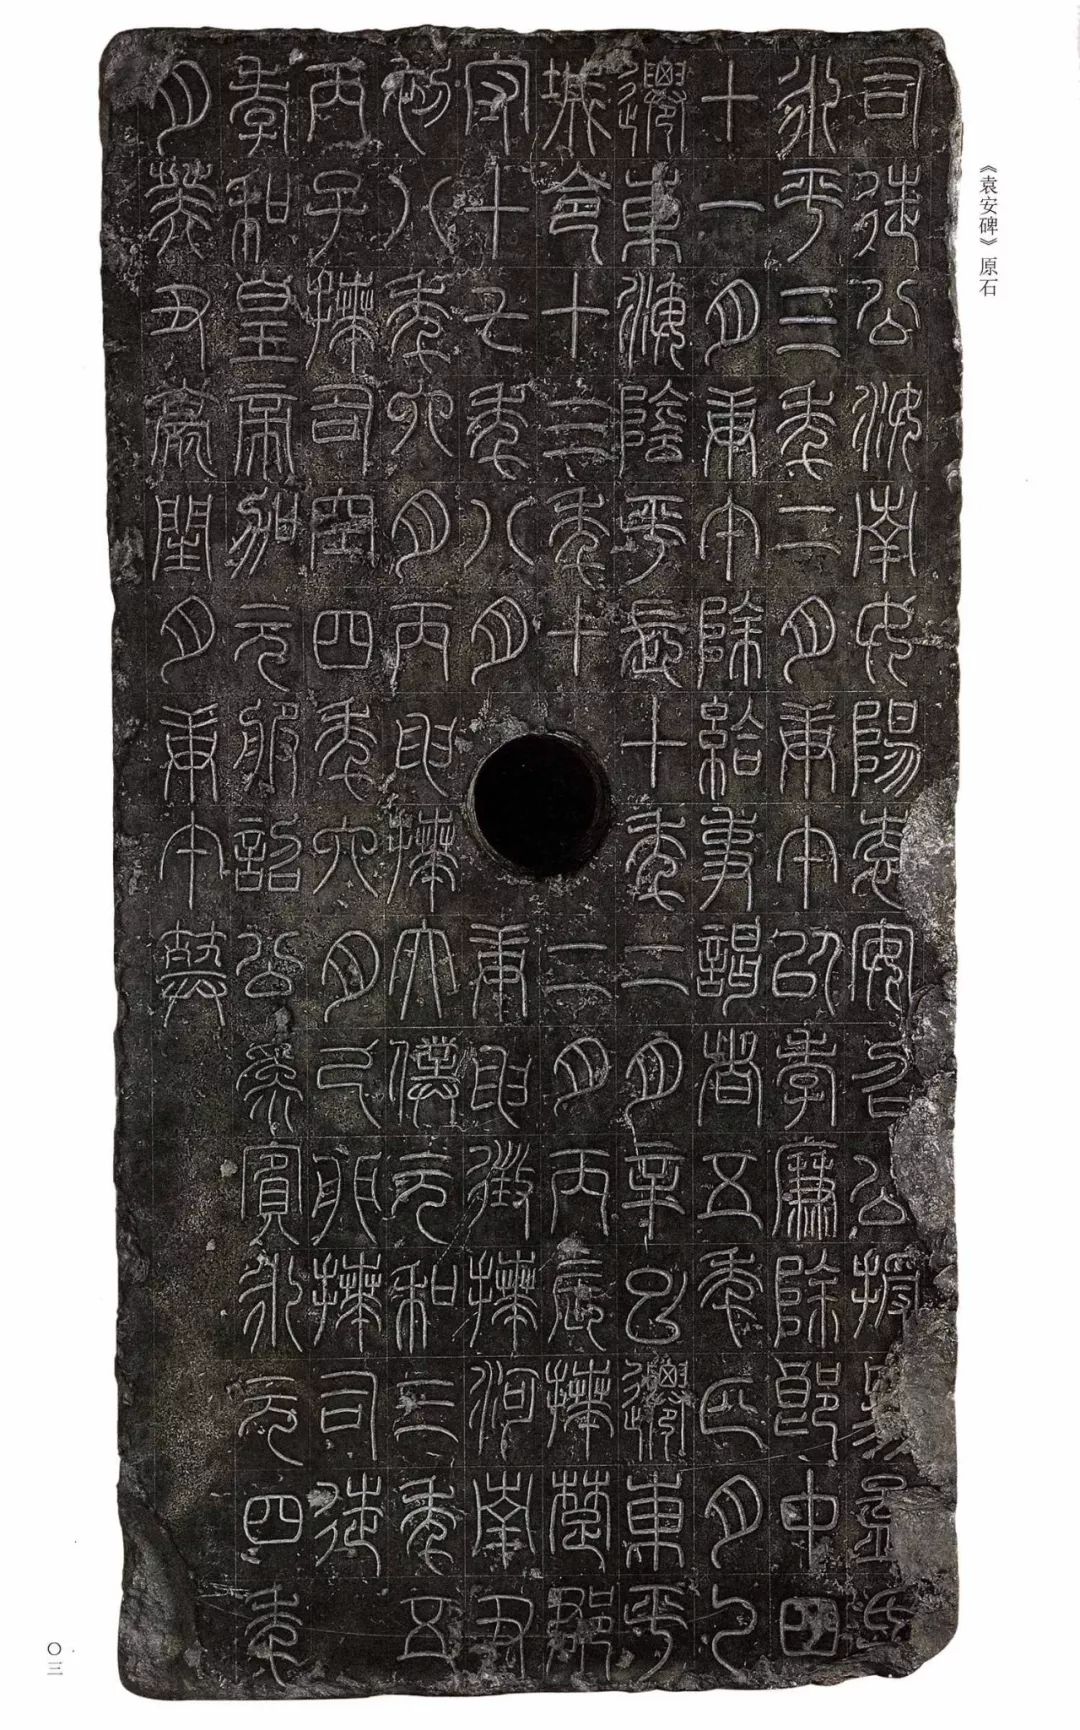 《袁安碑》原石
司徒公汝南女陽袁安召公授易孟氏
永平三年二月庚午以孝廉除郎中四
十一月庚午除給事謁者五年正月乙
遷東海陰平長十年二月辛巳遷東平
城令十三年十二月丙辰拜楚郡
守十七年八月庚申徵拜河南尹
初八年六月丙申拜太僕元和三年五
丙子拜司空四年六月己卯拜司徒
孝和皇帝加元服詔公為賓永元四年
月癸丑薨閏月庚午葬
〇三